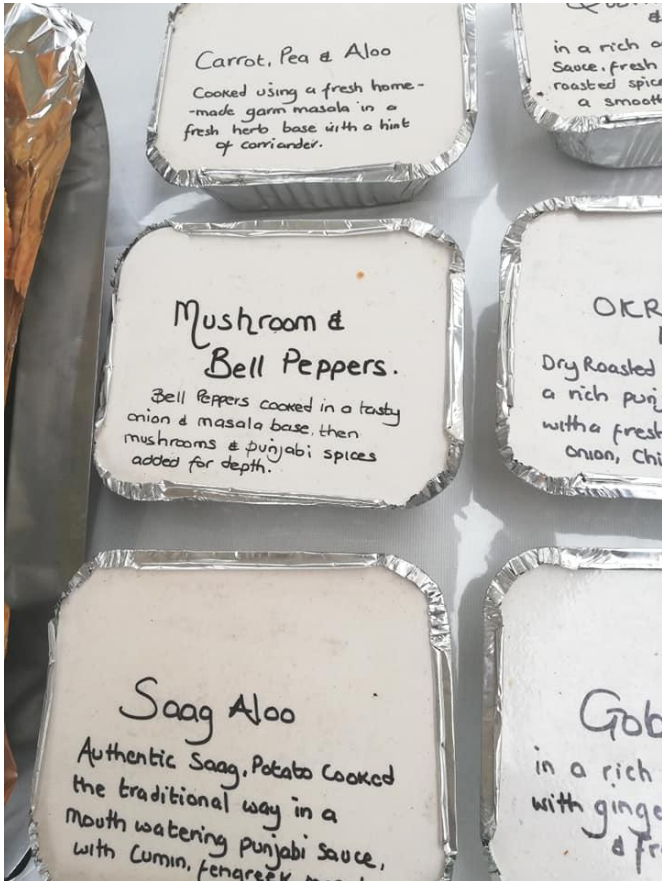 Carrot, Pea & Aloo
Cooked using a fresh home-
-made garm masala in a
fresh herb base with a hint
of corriander.
&
in a rich
Sauce, fresh
roasted spic
a smooth
Mushroom &
Bell Peppers.
Bell Peppers cooked in a tasty
onion & masala base, then
mushrooms & punjabi spices
added for depth.
OKR
Dry Roasted
a rich punj
with a fresh
onion, Chi
Saag Aloo
Authentic Saag, Potato Cooked
the traditional way in a
mouth watering punjabi sauce,
with Cumin, fengreek
Gob
in a rich
with ginge
& fr